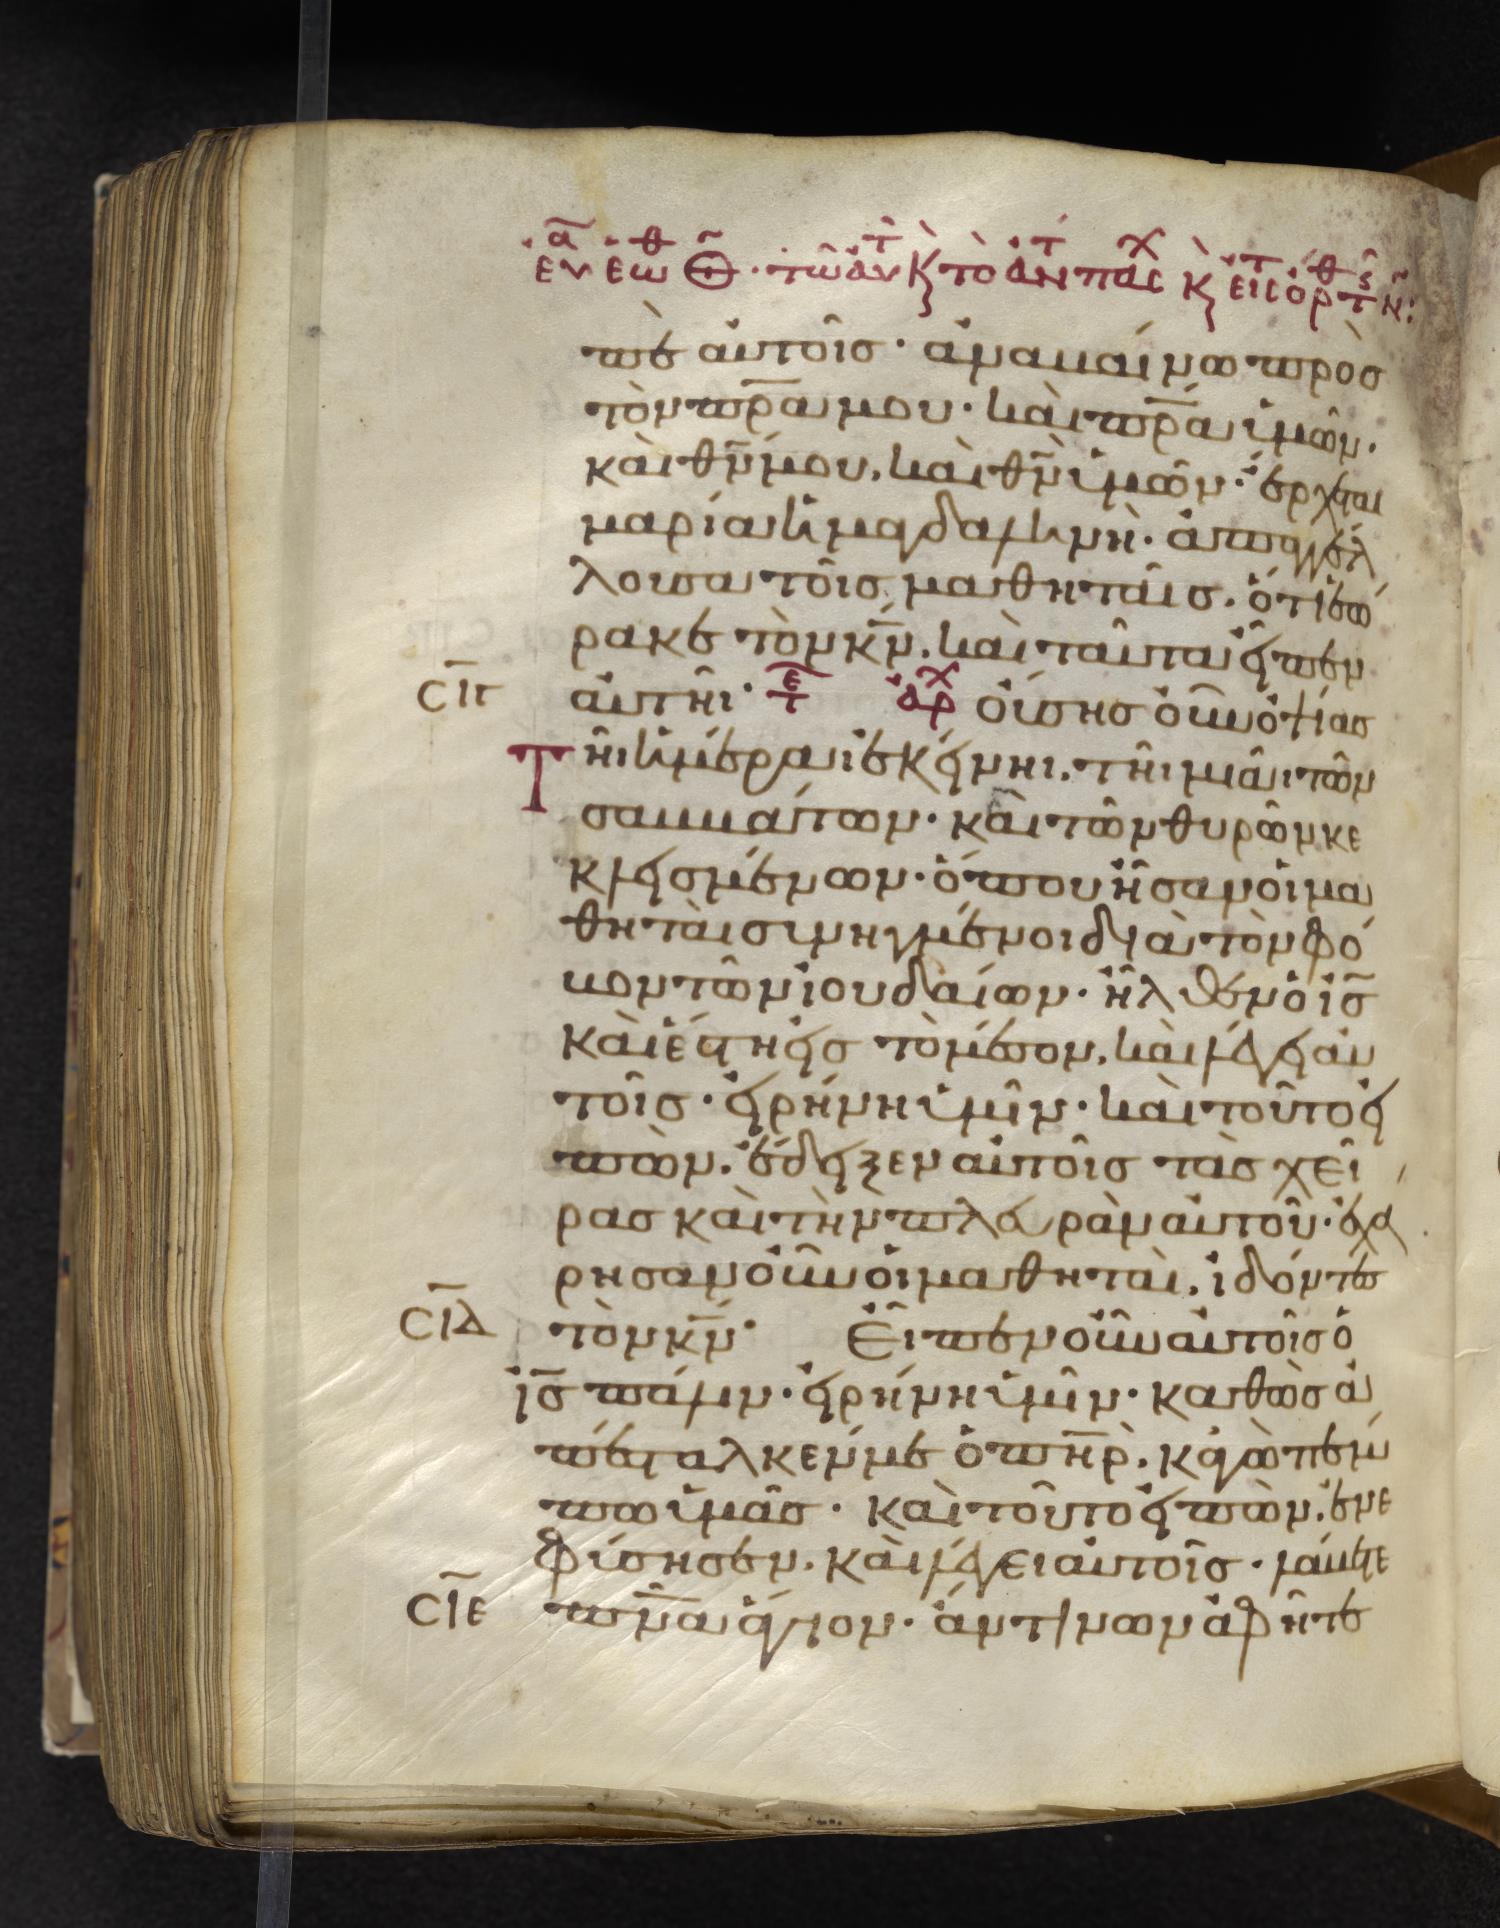 πὲ αὐτοῖσ· ἀναβαίνω πρὸσ
τὸν πρ̅α μου· καὶ πρ̅α ὑμῶν·
καὶ θν̅ μου, καὶ θν̅ ὑμῶν· ἔρχεται
μαρία ἡ μαγδαληνὴ· ἀπαγγέλ
λουσα τοῖσ μαθηταῖσ. ὅτι ἑώ
ρακε τὸν κν̅, καὶ ταῦτα εἶπεν
σιγ αὐτῆι· τε αρχ οὔσησ οὖν ὀψίασ
Τῆι ἡμέρα ἐκείνηι, τῆι μιᾶι τῶν
σαββάτων· καὶ τῶν θυρῶν κε
κλεισμένων· ὅπου ἦσαν οἱ μα
θηταὶ συνηγμένοι διὰ τὸν φό
βον τῶν ἰουδαίων· ἦλθεν ὁ ισ̅
καὶ ἔστη εἰσ τὸ μέσον, καὶ λέγει αὐ
τοῖσ· εἰρήνη ὑμῖν· καὶ τοῦτο εἰ
πὼν, ἔδειξεν αὐτοῖσ τὰσ χεῖ
ρασ καὶ τὴν πλευρὰν αὐτοῦ· ἐχά
ρησαν οὖν οἱ μαθηταὶ, ἰδόντεσ
σιδ τὸν κν̅· Εἶπεν οὖν αὐτοῖσ ὁ
ισ̅ πάλιν· εἰρήνη ὑμῖν· καθὼσ ἀ
πέσταλκεν με ὁ πηρ̅, κἀγὼ πέμ
πω ὑμᾶσ· καὶ τοῦτο εἰπὼν, ἐνε
φύσησεν, καὶ λέγει αὐτοῖσ· λάβετε
σιε πν̅α ἅγιον· ἄν τινων ἀφῆτε